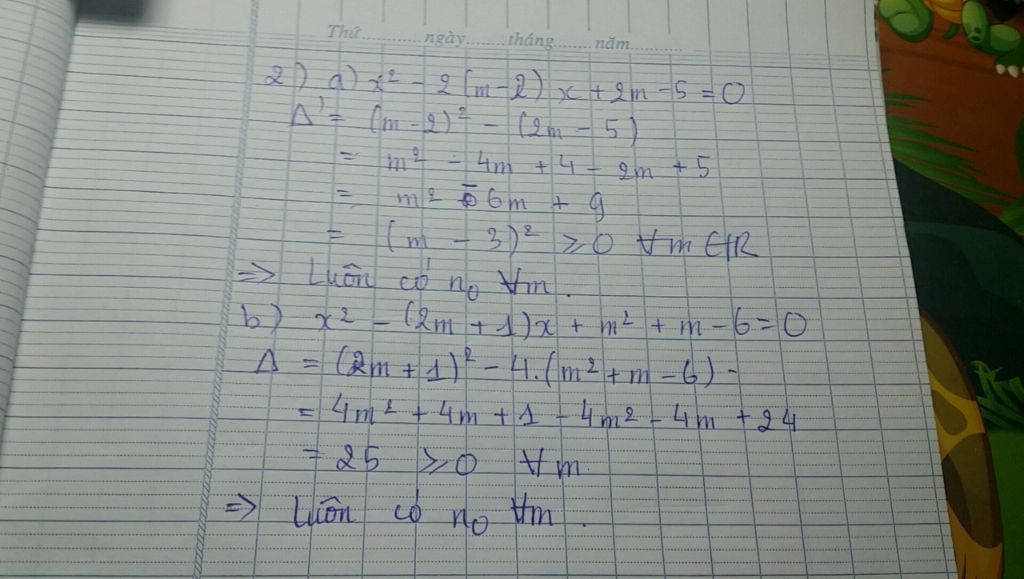 Thứ............ngày........tháng........năm............
2) a) x² - 2(m-2)x + 2m - 5 = 0
Δ' = (m-2)² - (2m - 5)
= m² - 4m + 4 - 2m + 5
= m² - 6m + 9
= (m - 3)² ⩾ 0 ∀m ∈ ℝ
=> Luôn có n₀ ∀m.
b) x² - (2m + 1)x + m² + m - 6 = 0
Δ = (2m + 1)² - 4.(m² + m - 6) -
= 4m² + 4m + 1 - 4m² - 4m + 24
= 25 ⩾ 0 ∀m
=> Luôn có n₀ ∀m.